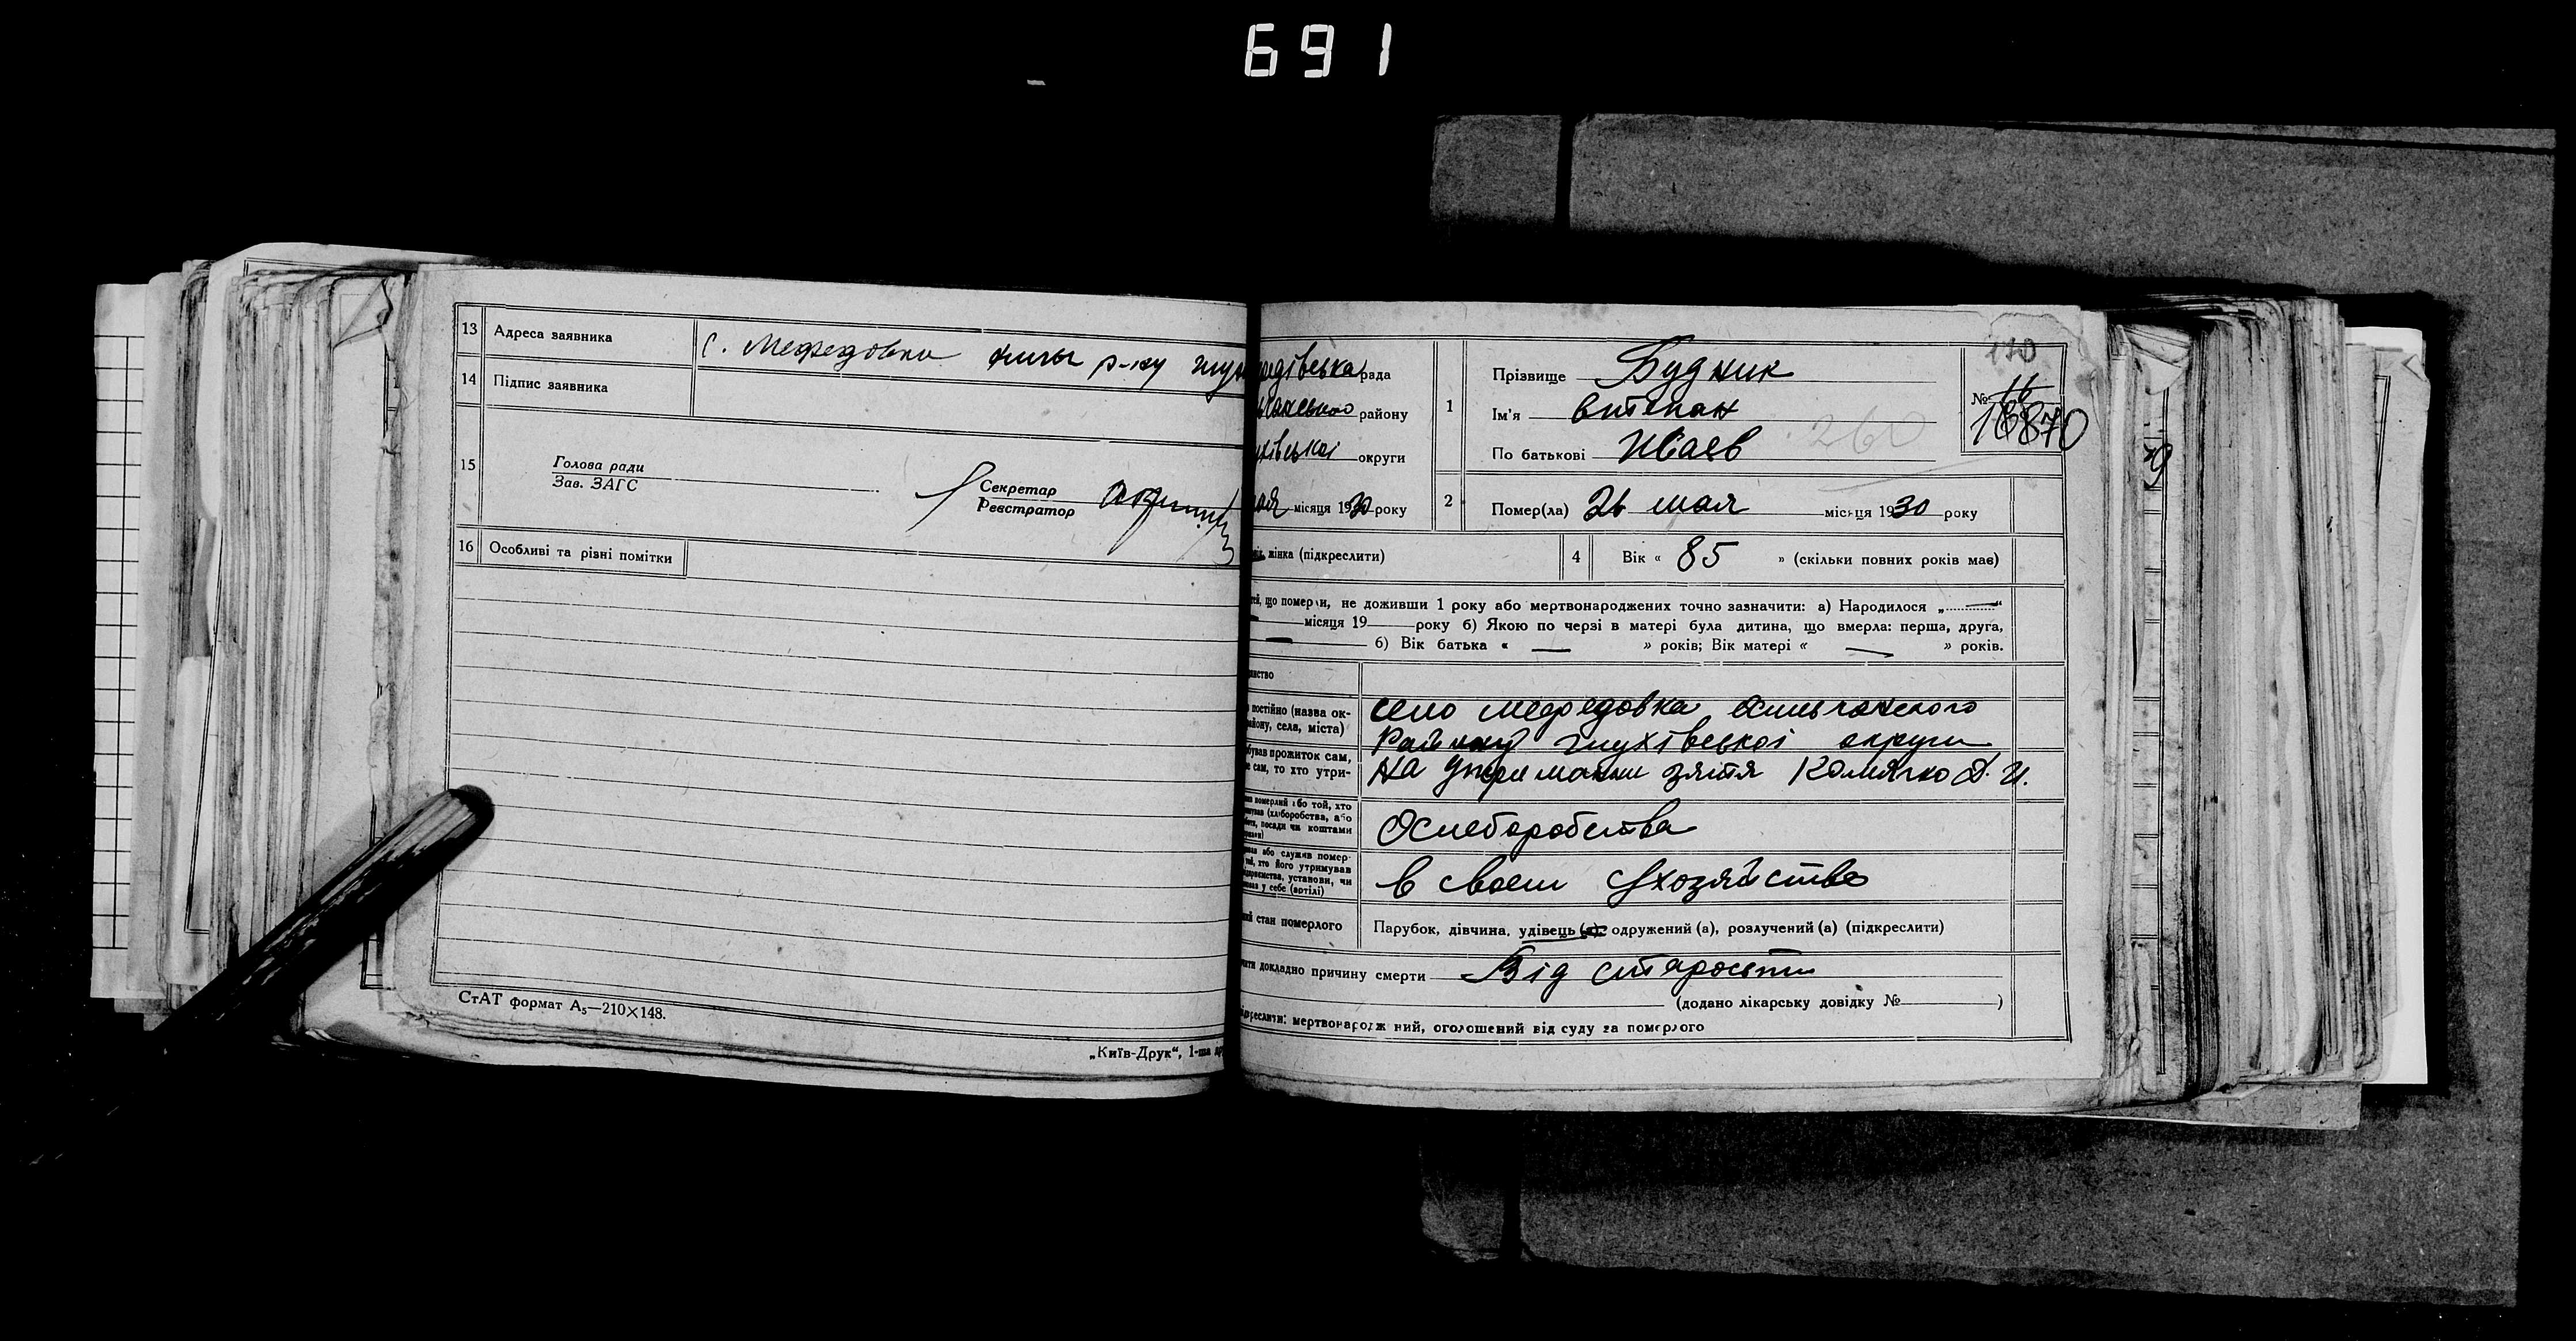 691
13 Адреса заявника с. Мефедовка хильч р-ну глух
14 Підпис заявника
15 Голова ради
Зав. ЗАГС
Секретар
Реєстратор
16 Особливі та різні помітки
СтАТ формат А₅—210×148.
„Київ-Друк“, 1-ша
едівська рада
району
ухівської округи
мая місяця 1930 року
1 Прізвище Будник
Ім'я Степан
По батькові Исаев
260
170
№ 16
2 Помер(ла) 26 мая місяця 1930 року
жінка (підкреслити)
4 Вік « 85 » (скільки повних років має)
тей, що померли, не доживши 1 року або мертвонароджених точно зазначити: а) Народилося „ — “
— місяця 19 року б) Якою по черзі в матері була дитина, що вмерла: перша, друга,
— б) Вік батька « — » років; Вік матері « — » років.
постійно (назва ок-
району, села, міста)
село Мефедовка Хильчанского
Району глухівської округи
бував прожиток сам,
не сам, то хто утри-
на утримании зятя Калячко Д. И.
померлий або той, хто
(хліборобства, або
посади чи коштами
Хлеборобства
або служив помер-
той, хто його утримував
підприємства, установи, чи
у себе (артілі)
в своем хозяйстве
стан померлого Парубок, дівчина, удівець (а), одружений (а), розлучений (а) (підкреслити)
докладно причину смерти Від старости
(додано лікарську довідку № )
підкреслити: мертвонароджений, оголошений від суду за померлого